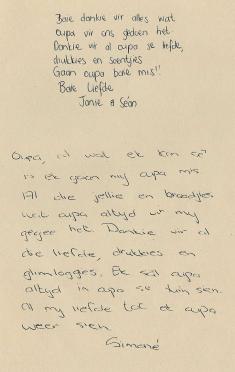 Baie dankie vir alles wat
oupa vir ons gedoen het.
Dankie vir al oupa se liefde,
drukkies en soentjies
Gaan oupa baie mis!!
Baie liefde
Janie & Séan
Oupa, al wat ek kan sê
is ek gaan my oupa mis
Al die jellie en broodjies
wat oupa altyd vir my
gegee het. Dankie vir al
die liefde, drukkies en
glimlagges. Ek sal oupa
altyd in apa se tuin sien.
Al my liefde tot ek oupa
weer sien.
Simoné